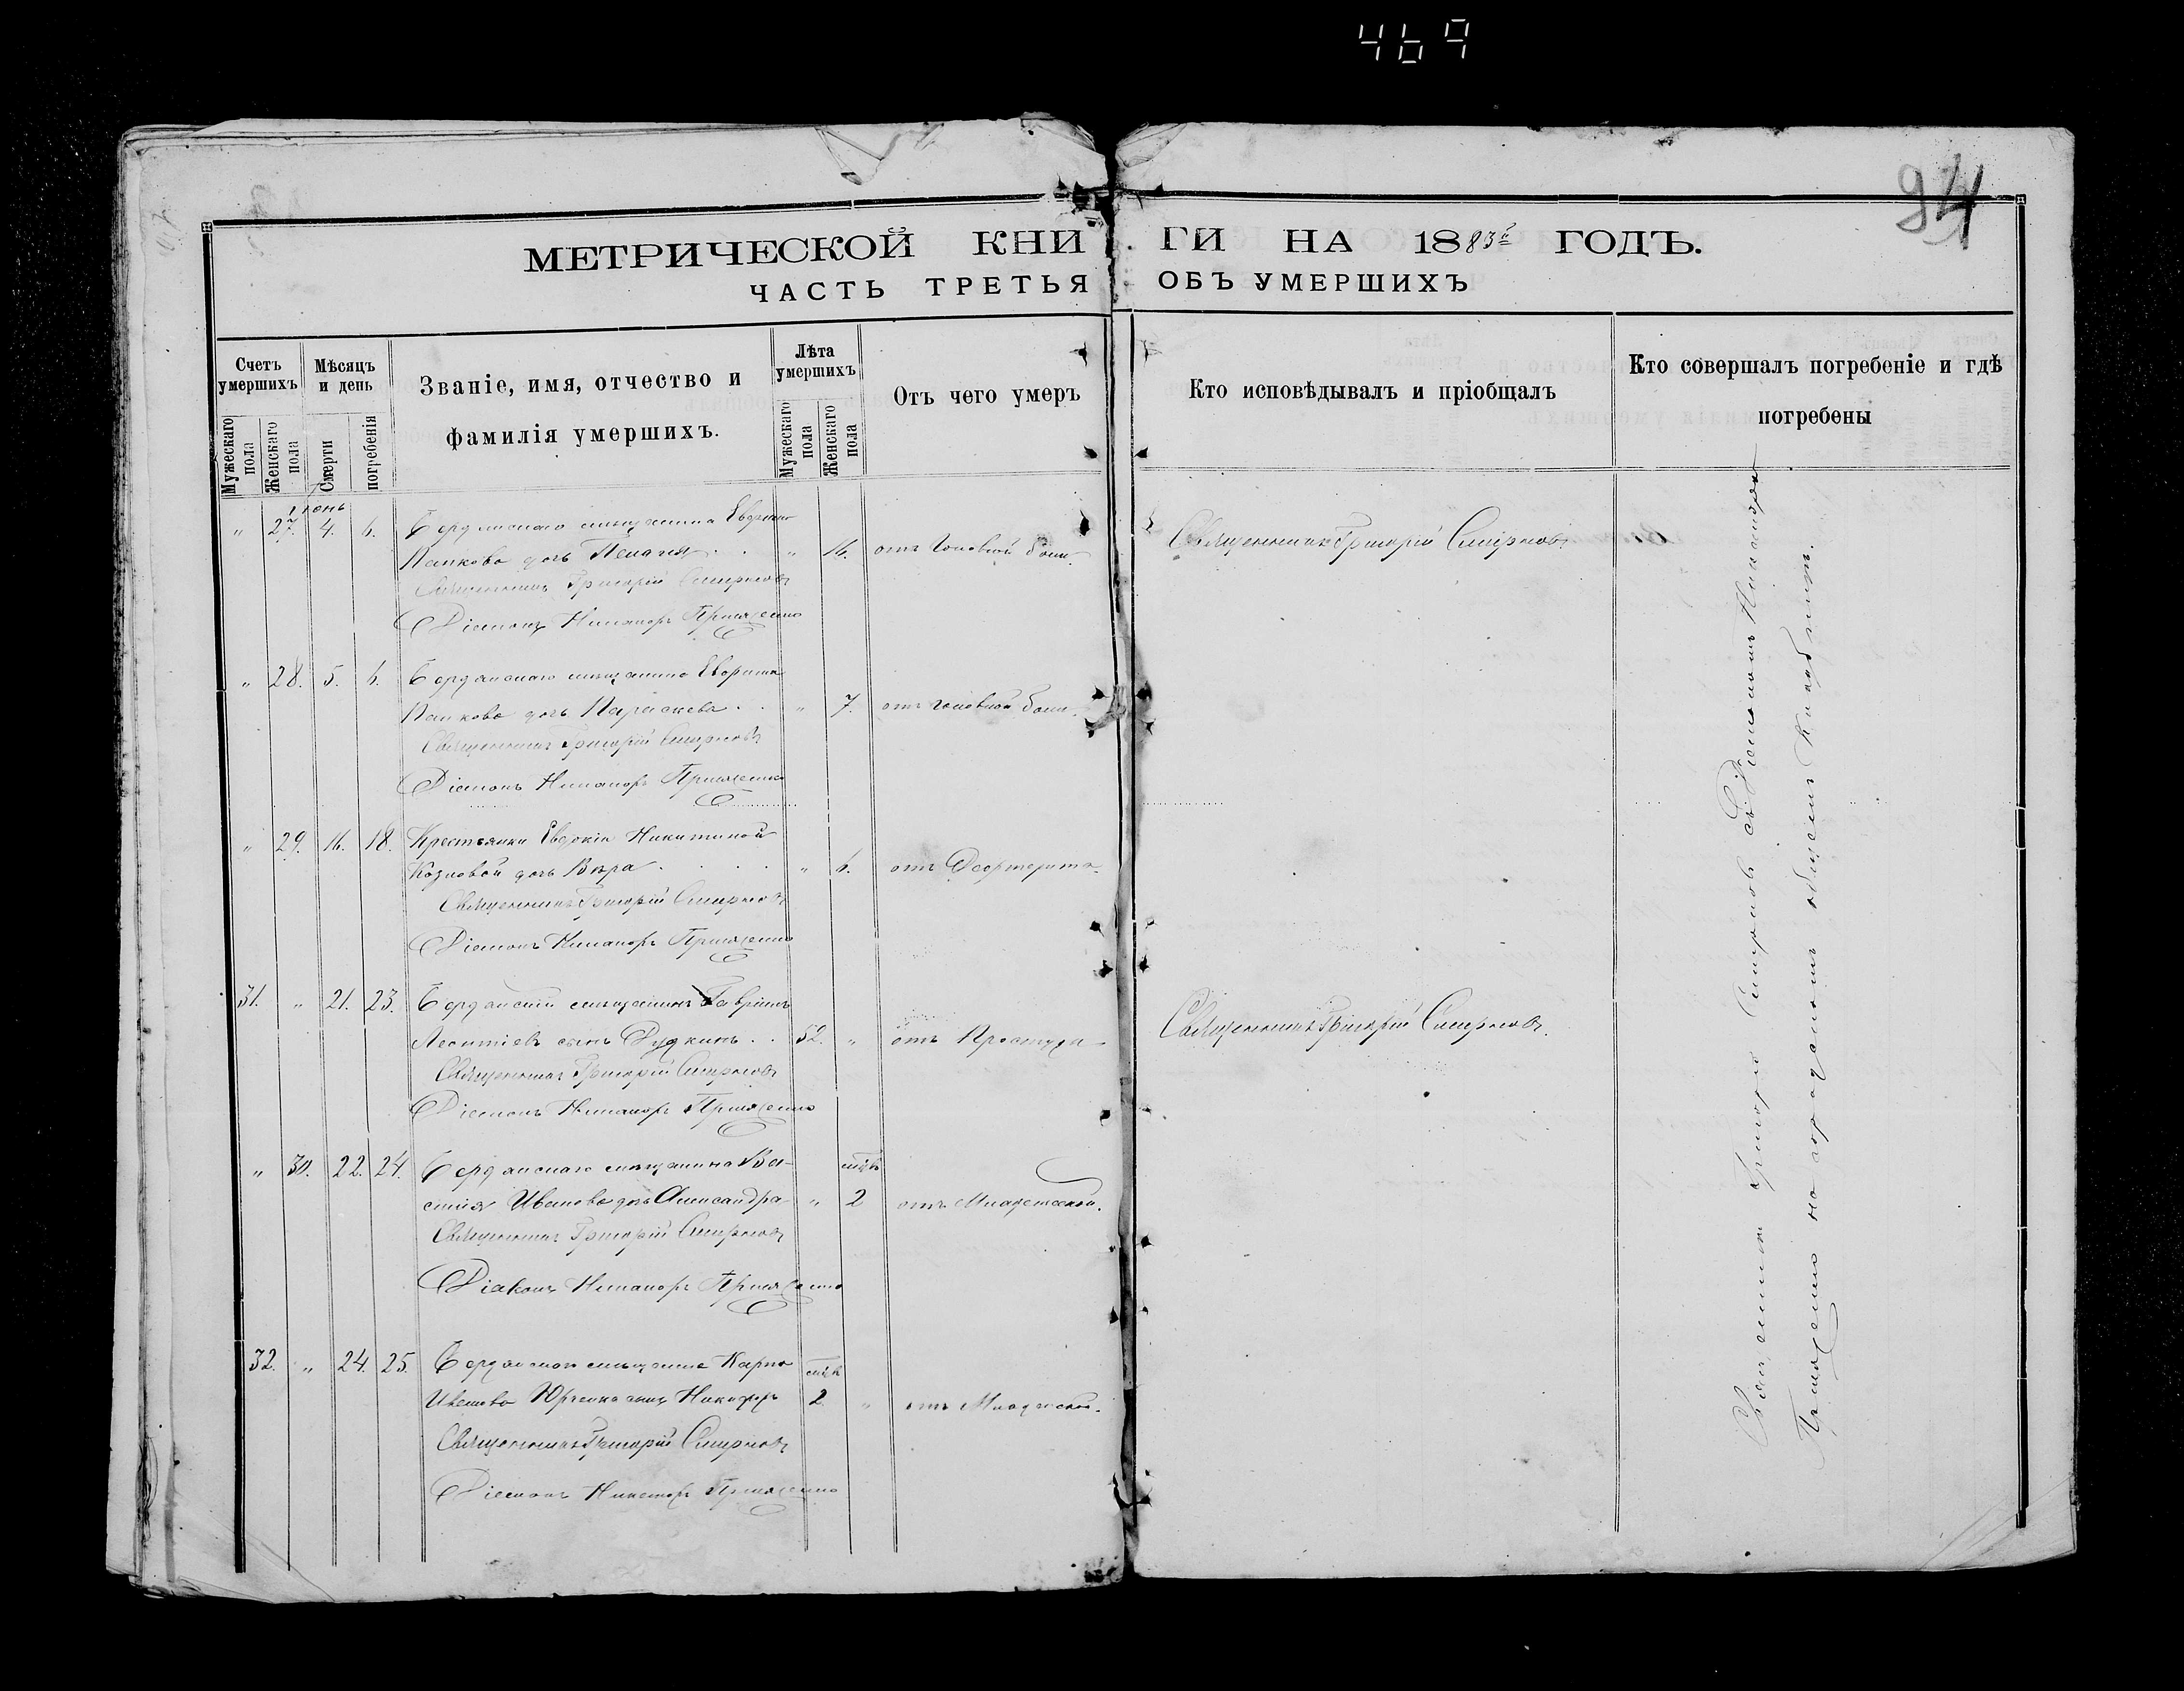 469
94
МЕТРИЧЕСКОЙ КНИГИ НА 1883й ГОДЪ.
ЧАСТЬ ТРЕТЬЯ ОБЪ УМЕРШИХЪ
Счетъ умершихъ
Мужескаго пола
Женскаго пола
Мѣсяцъ и день
Смерти
погребенія
Званіе, имя, отчество и
фамилія умершихъ.
Лѣта умершихъ
Мужескаго пола
Женскаго пола
Отъ чего умеръ
Кто исповѣдывалъ и пріобщалъ
Кто совершалъ погребеніе и гдѣ
погребены
Іюнь
" 27. 4. 6. Бердянскаго мѣщанина
Папкова дочь Пелагія . . " 16. отъ Головной боли. Священникъ Григорій Смирновъ
Священникъ Григорій Смирновъ
Діаконъ Никаноръ
" 28. 5. 6. Бердянскаго мѣщанина
Папкова дочь Параскева . . " 7. отъ головной боли.
Священникъ Григорій Смирновъ
Діаконъ Никаноръ
" 29. 16. 18. Крестьянки Евдокіи Никитиной
Козловой дочь Вѣра . . . . " 6. отъ Дефтерита.
Священникъ Григорій Смирновъ
Діаконъ Никаноръ
31. " 21. 23. Бердянскій мѣщанинъ Гавріилъ
Леонтіевъ сынъ Дудкинъ . . 52. " отъ Простуды Священникъ Григорій Смирновъ.
Священникъ Григорій Смирновъ
Діаконъ Никаноръ
" 30. 22. 24. Бердянскаго мѣщанина Ва-
силія Иванова дочь Александра " мѣс. 2 отъ Младенческой.
Священникъ Григорій Смирновъ
Діаконъ Никаноръ
32. " 24. 25. Бердянскаго мѣщанина Карпа
Иванова Юрченка сынъ Никифоръ мѣс. 2. " отъ Младенческой.
Священникъ Григорій Смирновъ
Діаконъ Никаноръ
Священникъ Григорій Смирновъ съ Діакономъ Никаноромъ
на городскомъ общемъ Кладбищѣ.